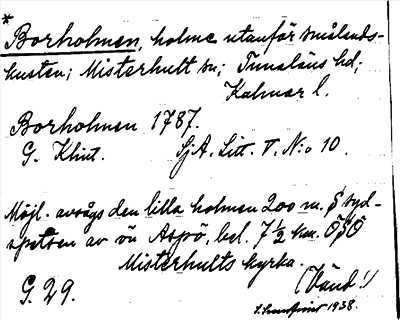 *
Borholmen, holme utanför smålands-
kusten; Misterhult sn; Tunaläns hd;
Kalmar l.
Borholmen 1787.
G. Klint. SjA. Litt. V. N:o 10.
Möjl. avsågs den lilla holmen 200 m. S syd-
spetsen av ön Aspö, bel. 7½ km. ÖSÖ
Misterhults kyrka.
(Vänd!)
G. 29.
1938.